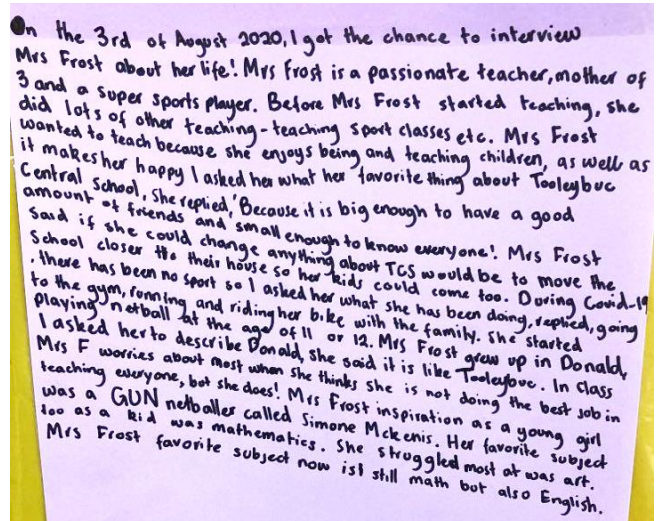 On the 3rd of August 2020, I got the chance to interview
Mrs Frost about her life! Mrs Frost is a passionate teacher, mother of
3 and a super sports player. Before Mrs Frost started teaching, she
did lots of other teaching - teaching sport classes etc. Mrs Frost
wanted to teach because she enjoys being and teaching children, as well as
it makes her happy I asked her what her favorite thing about Tooleybuc
Central School, She replied, 'Because it is big enough to have a good
amount of friends and small enough to know everyone! Mrs Frost
Said if she could change anything about TCS would be to move the
School closer tho their house so her kids could come too. During Covid-19
, there has been no sport so I asked her what she has been doing, replied, going
to the gym, running and riding her bike with the family. She started
playing netball at the age of 11 or 12. Mrs Frost grew up in Donald,
I asked her to describe Donald, she said it is like Tooleybuc. In class
Mrs F worries about most when she thinks she is not doing the best job in
teaching everyone, but she does! Mrs Frost inspiration as a young girl
was a GUN netballer called Simone Mckenis. Her favorite subject
too as a kid was mathematics. She struggled most at was art.
Mrs Frost favorite subject now is still math but also English.